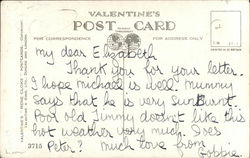 VALENTINE'S
POST CARD
FOR CORRESPONDENCE
FOR ADDRESS ONLY
my dear Elizabeth
Thank you for your letter.
I hope michael is well. mummy
says that he is very sunburnt.
Poor old Jimmy doesn't like this
hot weather very much. Does
Peter? much love from
3715 Gobbie